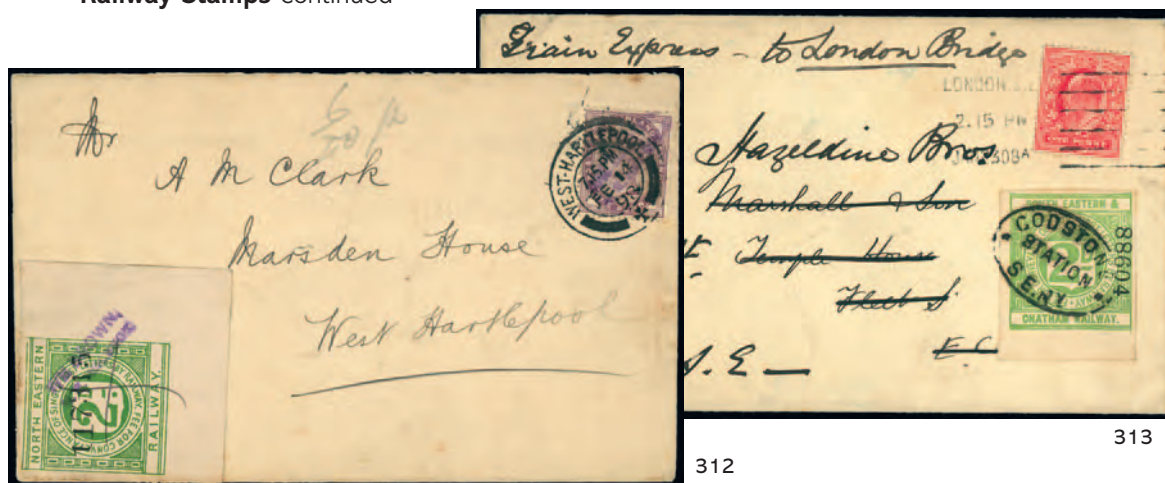 Railway Stamps continued
Mr
A M Clark
Marsden House
West Hartlepool
WEST-HARTLEPOOL
7.15 PM
FE 13
93
NORTH EASTERN
RAILWAY.
2d
312
Train Express - to London Bridge
LONDON
2.15 PM
Hazeldine Bros
Marshall & Son
Temple House
Fleet S
E.C
S.E
SOUTH EASTERN &
CHATHAM RAILWAY.
2d
88604
GODSTONE
STATION
S.E.RY
313